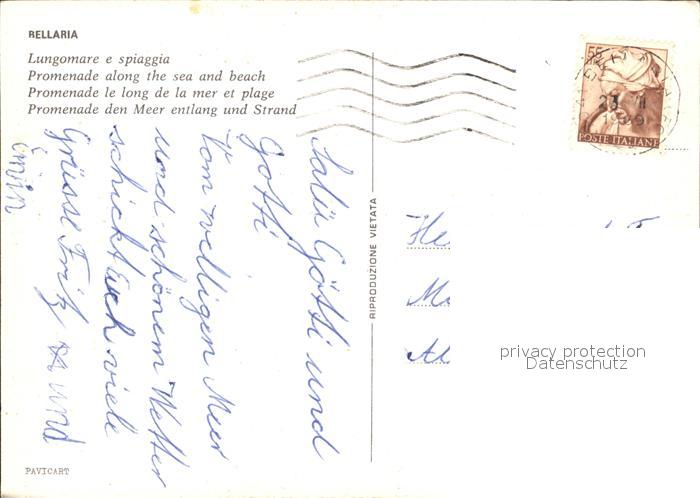 RELLARIA
Lungomare e spiaggia
Promenade along the sea and beach
Promenade le long de la mer et plage
Promenade den Meer entlang und Strand
Salü Götti und
Gotti
Vom welligen Meer
und schönem Wetter
schickt Euch viele
Grüsse Fritz und
Erwin
PAVICART
RIPRODUZIONE VIETATA
55
23
POSTE ITALIANE
He
M
Al
privacy protection
Datenschutz